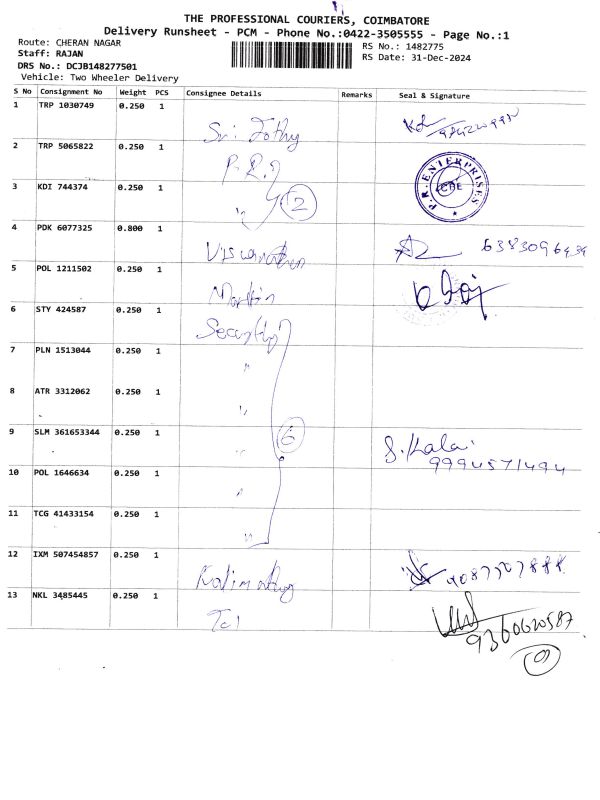 THE PROFESSIONAL COURIERS, COIMBATORE
Delivery Runsheet - PCM - Phone No.:0422-3505555 - Page No.:1
Route: CHERAN NAGAR
Staff: RAJAN
DRS No.: DCJB148277501
Vehicle: Two Wheeler Delivery
RS No.: 1482775
RS Date: 31-Dec-2024
S No Consignment No Weight PCS Consignee Details Remarks Seal & Signature
1 TRP 1030749 0.250 1 Sri Jothy
2 TRP 5065822 0.250 1 P.R.
P.R. ENTERPRISES
CBE
3 KDI 744374 0.250 1 " 2
4 PDK 6077325 0.800 1 Viswanathan 6383096434
5 POL 1211502 0.250 1 Martin
6 STY 424587 0.250 1 Security
7 PLN 1513044 0.250 1 "
8 ATR 3312062 0.250 1 "
9 SLM 361653344 0.250 1 " 6 S. Kalai
9994571494
10 POL 1646634 0.250 1 "
11 TCG 41433154 0.250 1 "
12 IXM 507454857 0.250 1
13 NKL 3485445 0.250 1 9360620587